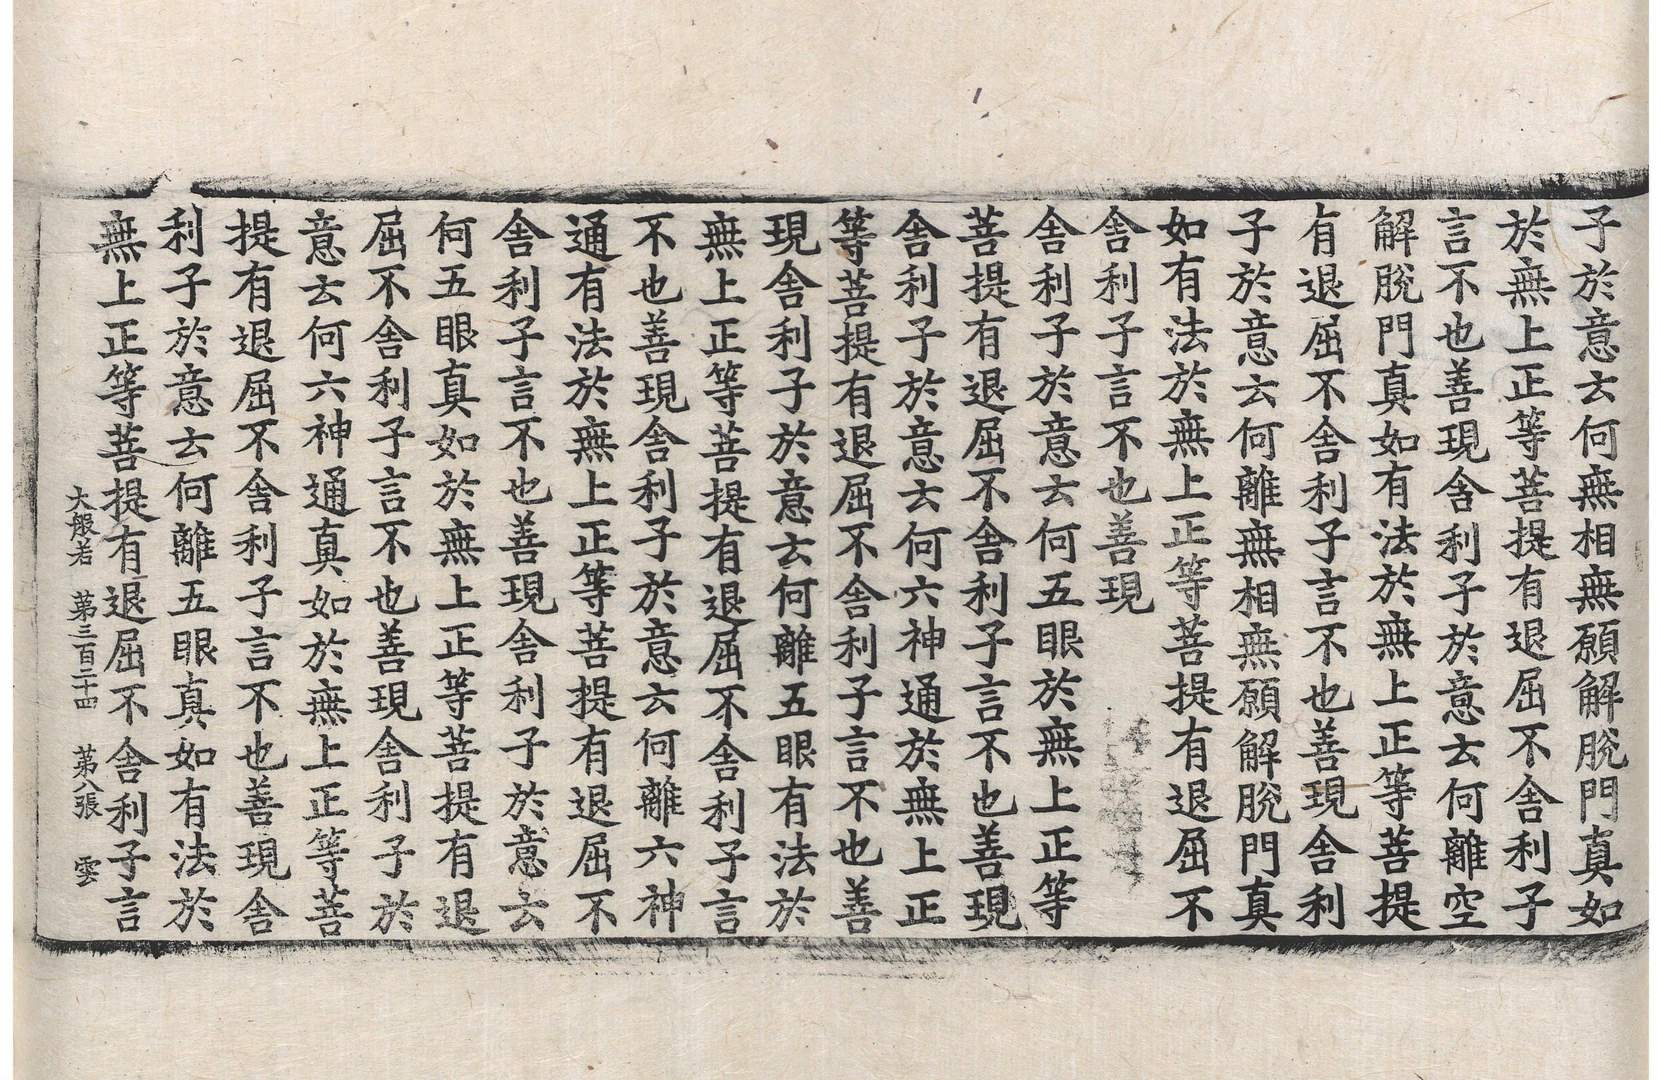 子於意云何無相無願解脫門真如
於無上正等菩提有退屈不舍利子
言不也善現舍利子於意云何離空
解脫門真如有法於無上正等菩提
有退屈不舍利子言不也善現舍利
子於意云何離無相無願解脫門真
如有法於無上正等菩提有退屈不
舍利子言不也善現
舍利子於意云何五眼於無上正等
菩提有退屈不舍利子言不也善現
舍利子於意云何六神通於無上正
等菩提有退屈不舍利子言不也善
現舍利子於意云何離五眼有法於
無上正等菩提有退屈不舍利子言
不也善現舍利子於意云何離六神
通有法於無上正等菩提有退屈不
舍利子言不也善現舍利子於意云
何五眼真如於無上正等菩提有退
屈不舍利子言不也善現舍利子於
意云何六神通真如於無上正等菩
提有退屈不舍利子言不也善現舍
利子於意云何離五眼真如有法於
無上正等菩提有退屈不舍利子言
大般若 第三百二十四 第八張 雲